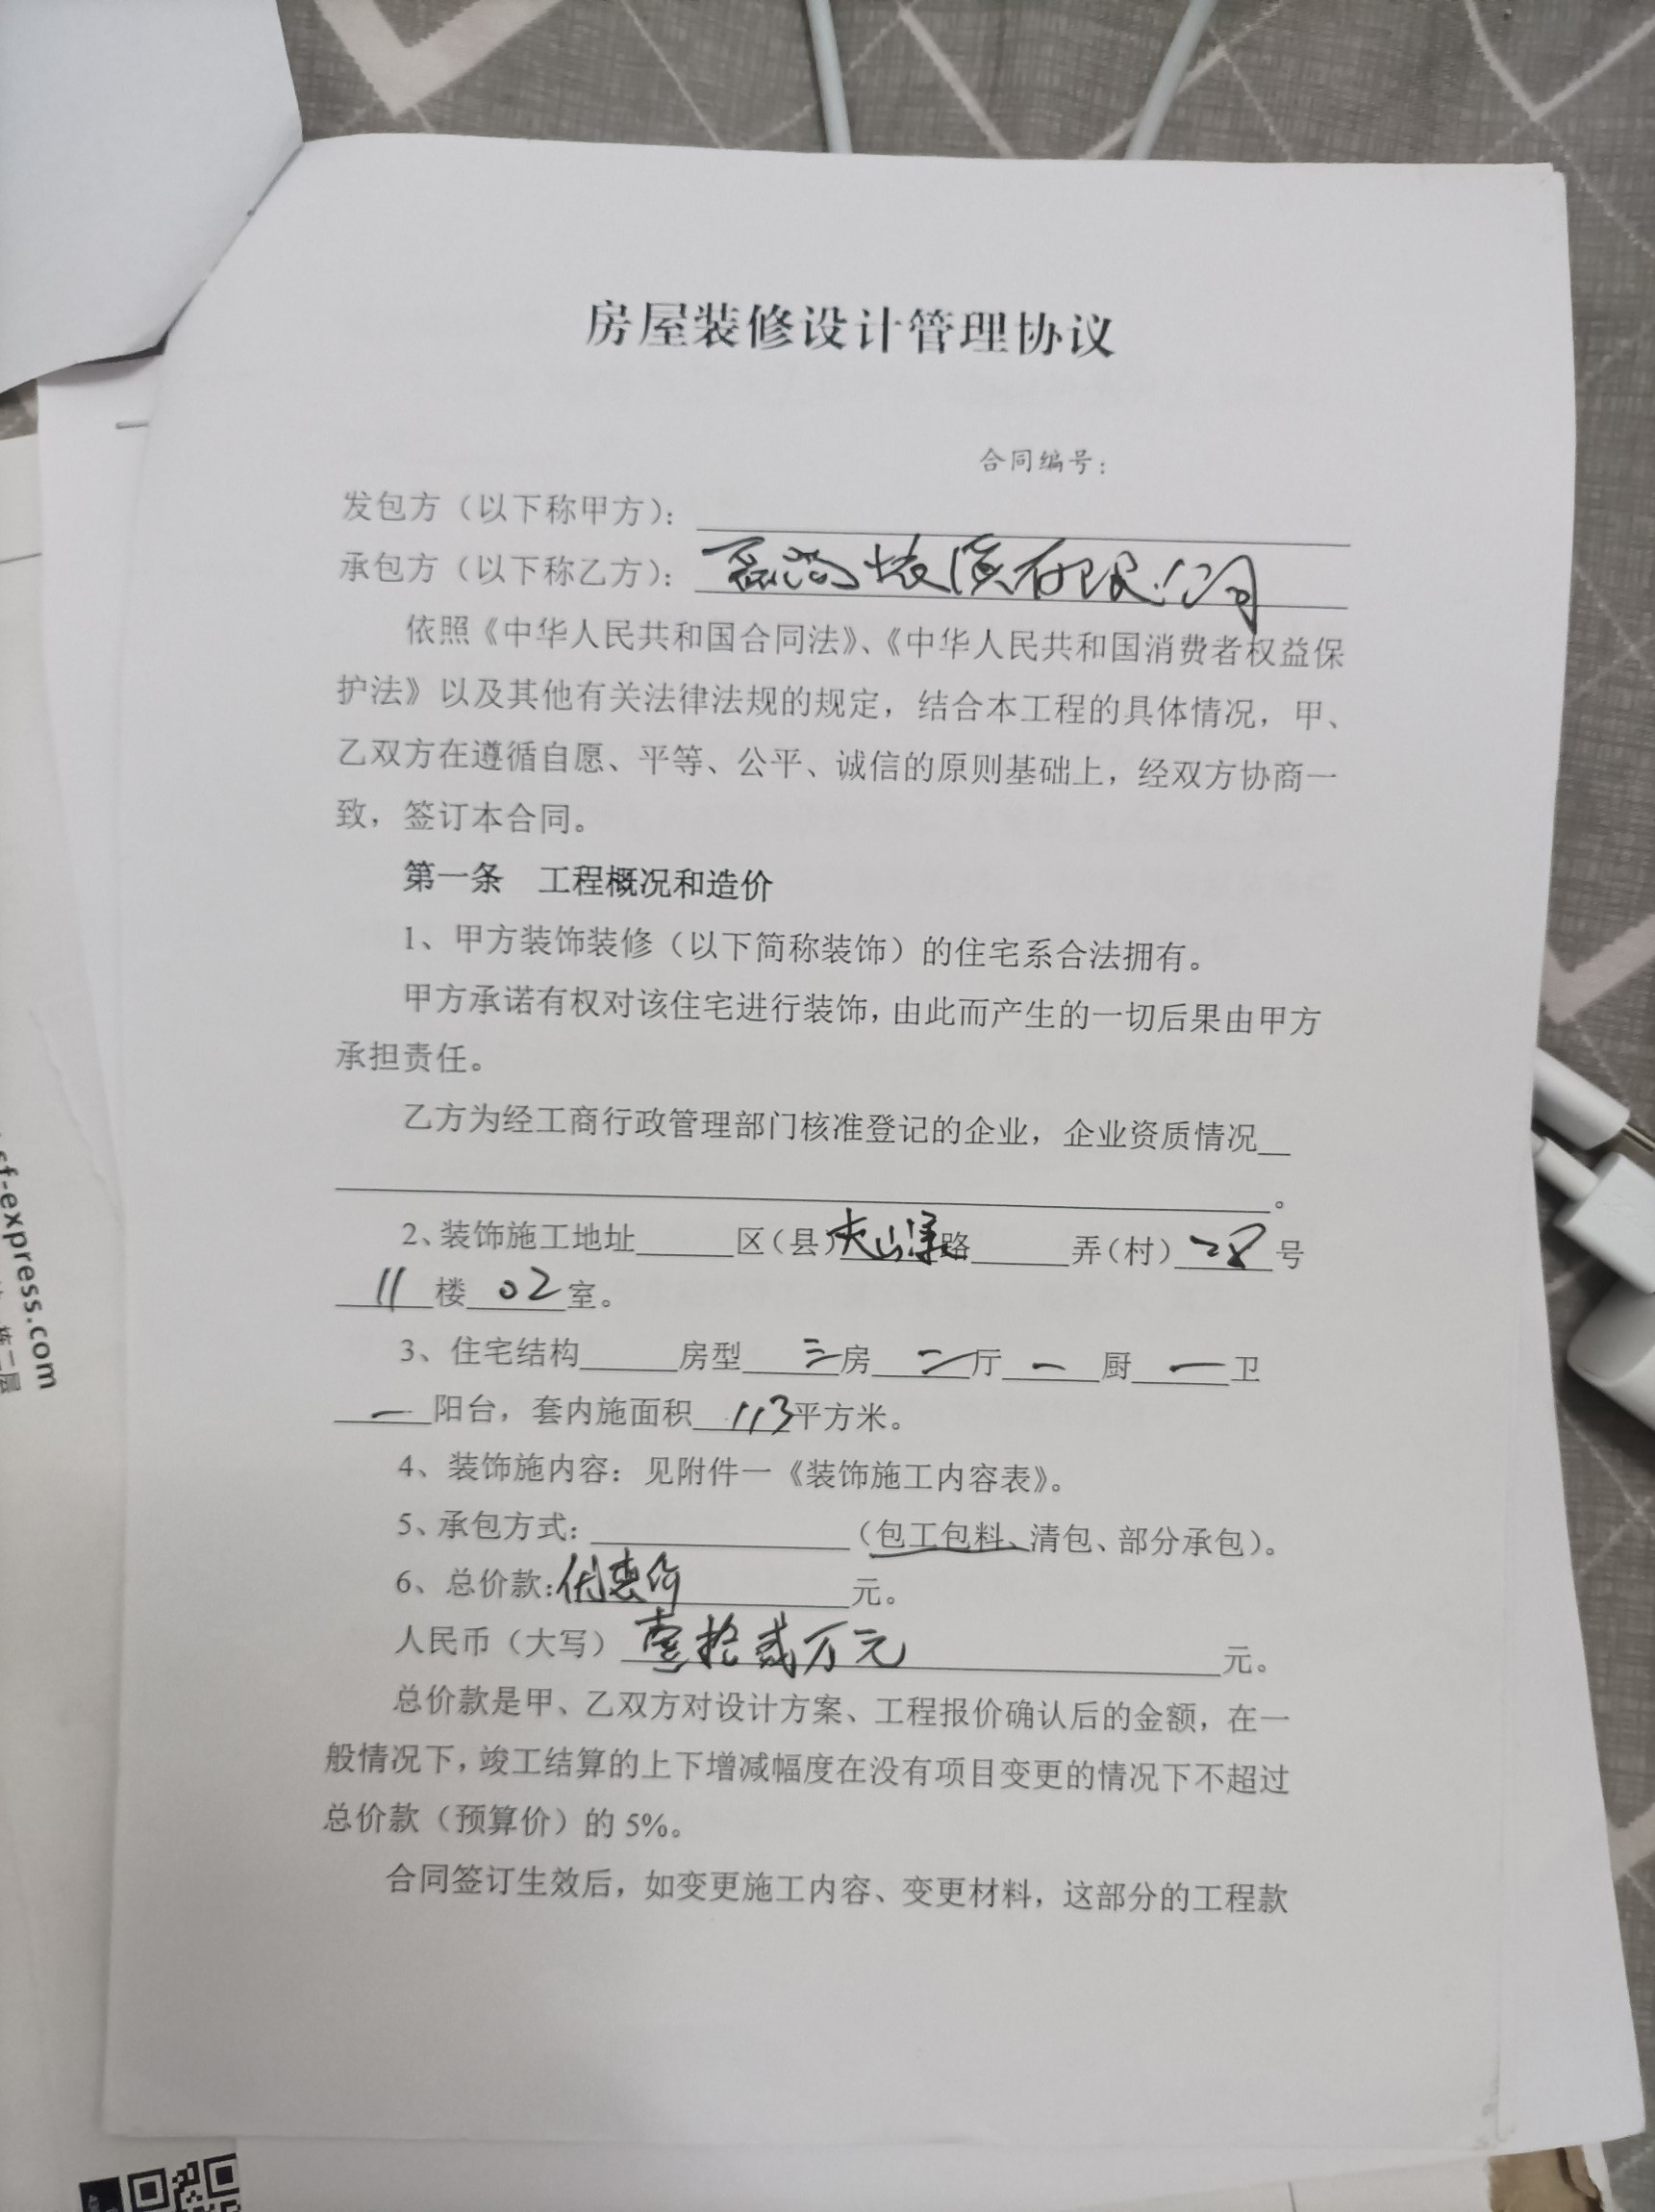 房屋装修设计管理协议
合同编号：
发包方（以下称甲方）：
承包方（以下称乙方）： 装潢有限公司
依照《中华人民共和国合同法》、《中华人民共和国消费者权益保
护法》以及其他有关法律法规的规定，结合本工程的具体情况，甲、
乙双方在遵循自愿、平等、公平、诚信的原则基础上，经双方协商一
致，签订本合同。
第一条 工程概况和造价
1、甲方装饰装修（以下简称装饰）的住宅系合法拥有。
甲方承诺有权对该住宅进行装饰，由此而产生的一切后果由甲方
承担责任。
乙方为经工商行政管理部门核准登记的企业，企业资质情况__
。
2、装饰施工地址______区（县）夹山漾路______弄（村）28号
11楼02室。
3、住宅结构______房型三房二厅一厨一卫
一阳台，套内施面积113平方米。
4、装饰施内容：见附件一《装饰施工内容表》。
5、承包方式：________________（包工包料、清包、部分承包）。
6、总价款：优惠价元。
人民币（大写）壹拾贰万元元。
总价款是甲、乙双方对设计方案、工程报价确认后的金额，在一
般情况下，竣工结算的上下增减幅度在没有项目变更的情况下不超过
总价款（预算价）的 5%。
合同签订生效后，如变更施工内容、变更材料，这部分的工程款
sf-express.com